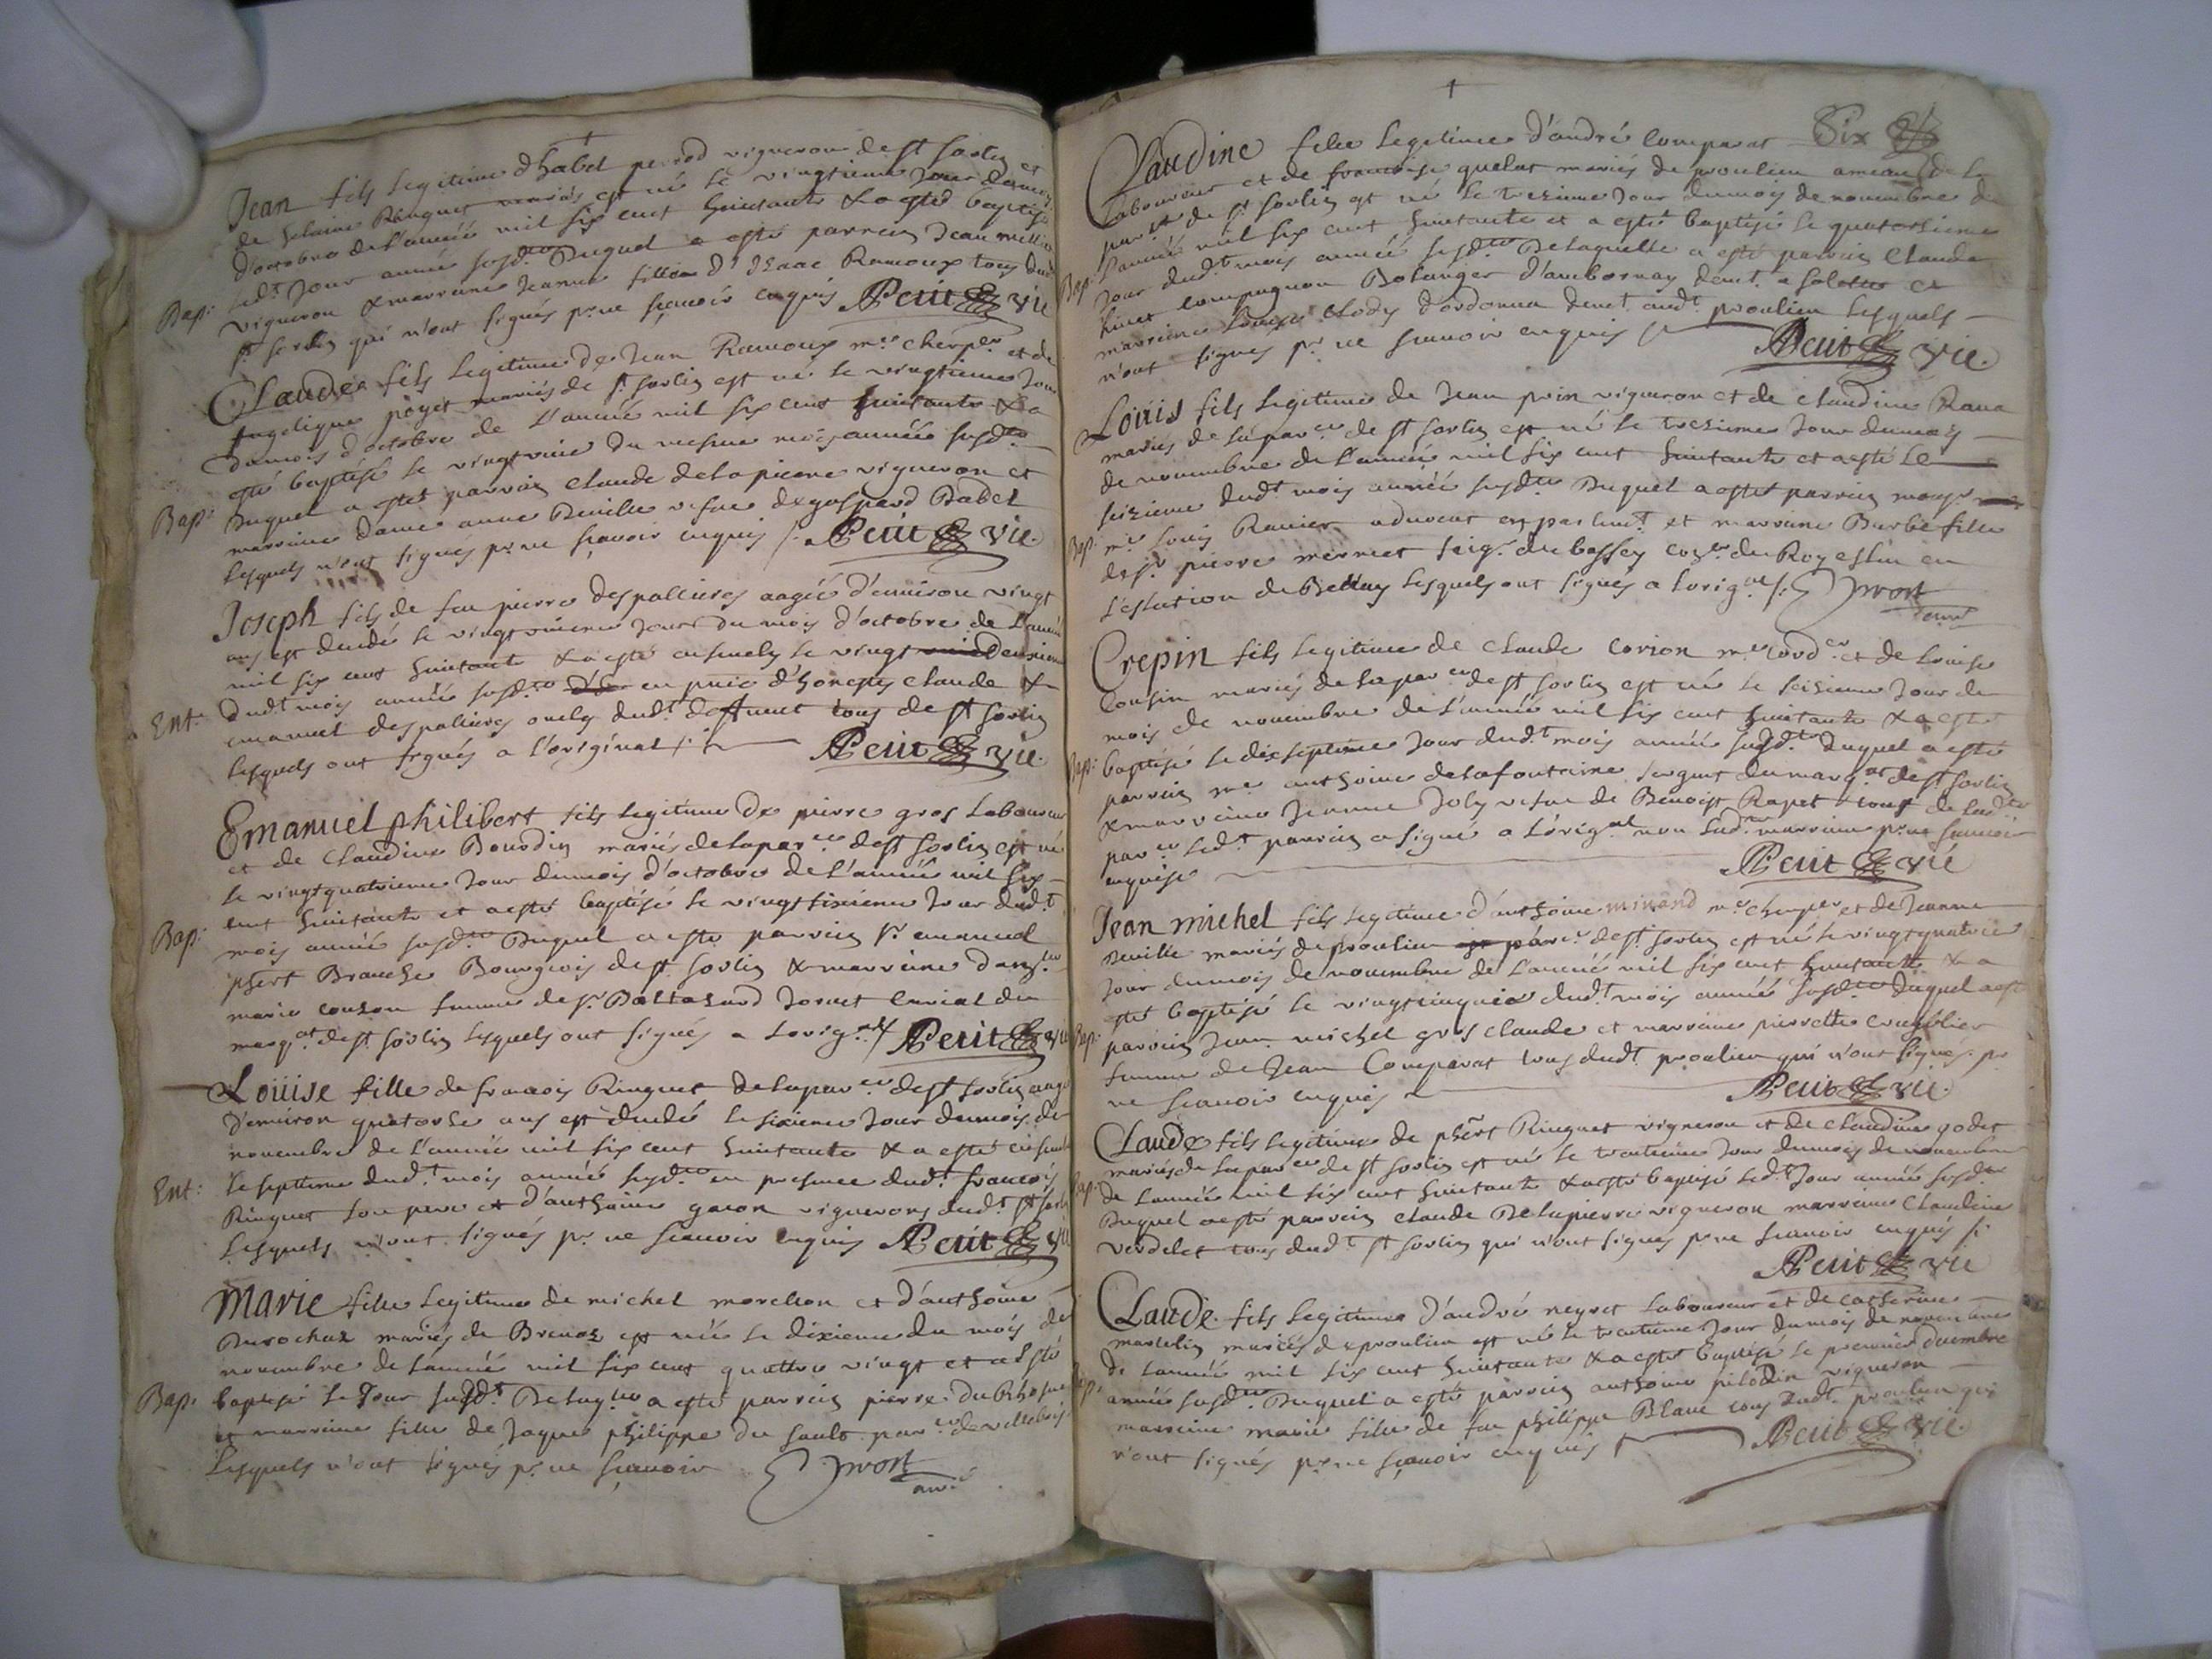 Jean fils legitime d'habel perrod vigneron de st sorlin et
de helaine Ringuet mariés est né le vingtieme Jour du mois
d'octobre de l'année mil six cent huictante & a esté baptisé
Bap: led.t Jour année susd.te Duquel a esté parrein Jean
vigneron & marreine Jeanne fillie d' Isaac Ramoux tous dud.t
st sorlin qui n'ont signés p.r ne sçavoir enquis Petit vic
Claude fils legitime de Jean Ramoux m.re cherp.er et de
Angelique poyet mariés de st sorlin est né le vingtieme Jour
du mois d'octobre de l'année mil six cent huictante & a
esté baptisé le vingt unie du mesme mois année susd.te
Bap: Duquel a estet parrein Claude de la pierre vigneron et
marreine dame anne Deville vefue de gaspard Babet
lesquels n'ont signés p.r ne sçavoir enquis /. Petit vic.
Joseph fils de feu pierre despallieres aagée d'environ vingt
ans est decedé le vingt unieme Jour du mois d'octobre de l'année
mil six cent huictante & a esté ensevely le vingt deuxieme
Ent: dud.t mois année susd.te en p.nce d'honestes claude &
emanuel despalieres dud.t deffunct tous de st sorlin
lesquels ont signés a l'original /. Petit vic.
Emanuel philibert fils legitime de pierre gros laboureur
et de Claudine Bourdin mariés de la par.ce de st sorlin est né
le vingt quatrieme Jour du mois d'octobre de l'année mil six
cent huictante et a esté baptisé le vingt sixieme Jour dud.t
Bap: mois année susd.te Duquel a esté parrein s.r emanuel
phert Branche Bourgeois de st sorlin & marreine dam.lle
marie couson femme de s.r Baltasard Jornet du
marq.at de st sorlin lesquels ont signés a l'orig.al / Petit vic
Louise fille de francois Ringuet de la par.ce de st sorlin aagé
d'environ quatorse ans est decedé le sixieme Jour du mois de
novembre de l'année mil six cent huictante & a esté ensevely
Ent: le septieme dud.t mois année susd.te en presence dud.t francois
Ringuet son pere et d'anthoine vignerons dud.t st sorlin
lesquels n'ont signés p.r ne sçavoir enquis Petit vic
Marie fille legitime de michel morellon et d'anthoine
Durochat mariés de Brenaz est née le dixieme du mois de
novembre de l'année mil six cent quattre vingt et a esté
Bap: baptisé le Jour susd.t De laq.lle a esté parrein pierre du Rhosne
et marreine fille de Jaques philippe du sault par.ce de villebois
lesquels n'ont signés p.r ne sçavoir
Six
Claudine fille legitime d'andré comparat
laboureur et de francoise quelat mariés de proulieu ameau de la
par.ce de st sorlin est né le trezieme Jour du mois de novembre de
l'année mil six cent huictante et a esté baptisé le quatorsieme
Bap: Jour dud.t mois année susd.te De laquelle a esté parrein Claude
compagnon Bolanger d'ambornay dem.t a et
marreine Louise Clody d'ordonna dem.t aud.t proulieu lesquels
n'ont signés p.r ne scavoir enquis Petit vic.
Louis fils legitime de Jean prin vigneron et de claudine Rana
mariés de la par.ce de st sorlin est né le trezieme Jour du mois
de novembre de l'année mil six cent huictante et a esté le
seizieme dud.t mois année susd.te Duquel a estet parrein mons.r
Bap: m.e Louis Ravier advocat en parlem.t et marreine Barbe fille
de s.r pierre mermet seig.r du bessey cons.er du Roy eslu en
l'eslection de Bellay lesquels ont signés a l'orig.al /.
Crepin fils legitime de Claude corion m.re cord.er et de Louise
Cousin mariés de la par.ce de st sorlin est né le seisieme Jour de
mois de novembre de l'année mil six cent huictante & a estet
Bap: baptisé le dixseptieme Jour dud.t mois année susd.te Duquel a esté
parrein m.e anthoine de la fontaine sergent du marq.at de st sorlin
& marreine Jeanne Joly vefue de Benoist Rapet tous de lad.te
par.ce led.t parrein a signé a l'orig.al non lad.te marreine p.r ne scavoir
enquise Petit vic
Jean michel fils legitime d'anthoine minand m.re cherp.er et de Jeanne
Deville mariés de proulieu par.ce de st sorlin est né le vingtquatrie
Jour du mois de novembre de l'année mil six cent huictante & a
estet baptisé le vingtcinquie dud.t mois année susd.te Duquel a esté
Bap: parrein Jean michel gros claude et marreine pierrette
femme de Jean Comparat tous dud.t proulieu qui n'ont signés p.r
ne scavoir enquis Petit vic.
Claude fils legitime de phert Ringuet vigneron et de Claudine godet
mariés de la par.ce de st sorlin est né le trentieme Jour du mois de novembre
Bap: de l'année mil six cent huictante & a esté baptisé led.t Jour année susd.te
Duquel a esté parrein Claude De la pierre vigneron marreine Claudine
verdelet tous dud.t st sorlin qui n'ont signés p.r ne scavoir enquis /.
Petit vic
Claude fils legitime d'andré neyret laboureur et de catherine
marcelin mariés de proulieu est né le trentieme Jour du mois de novembre
de l'année mil six cent huictante & a esté baptisé le premier decembre
Bap: année susd.te Duquel a esté parrein anthoine pilodin vigneron
marreine marie fille de feu philippe Blanc tous dud.t proulieu qui
n'ont signés p.r ne sçavoir enquis Petit vic.